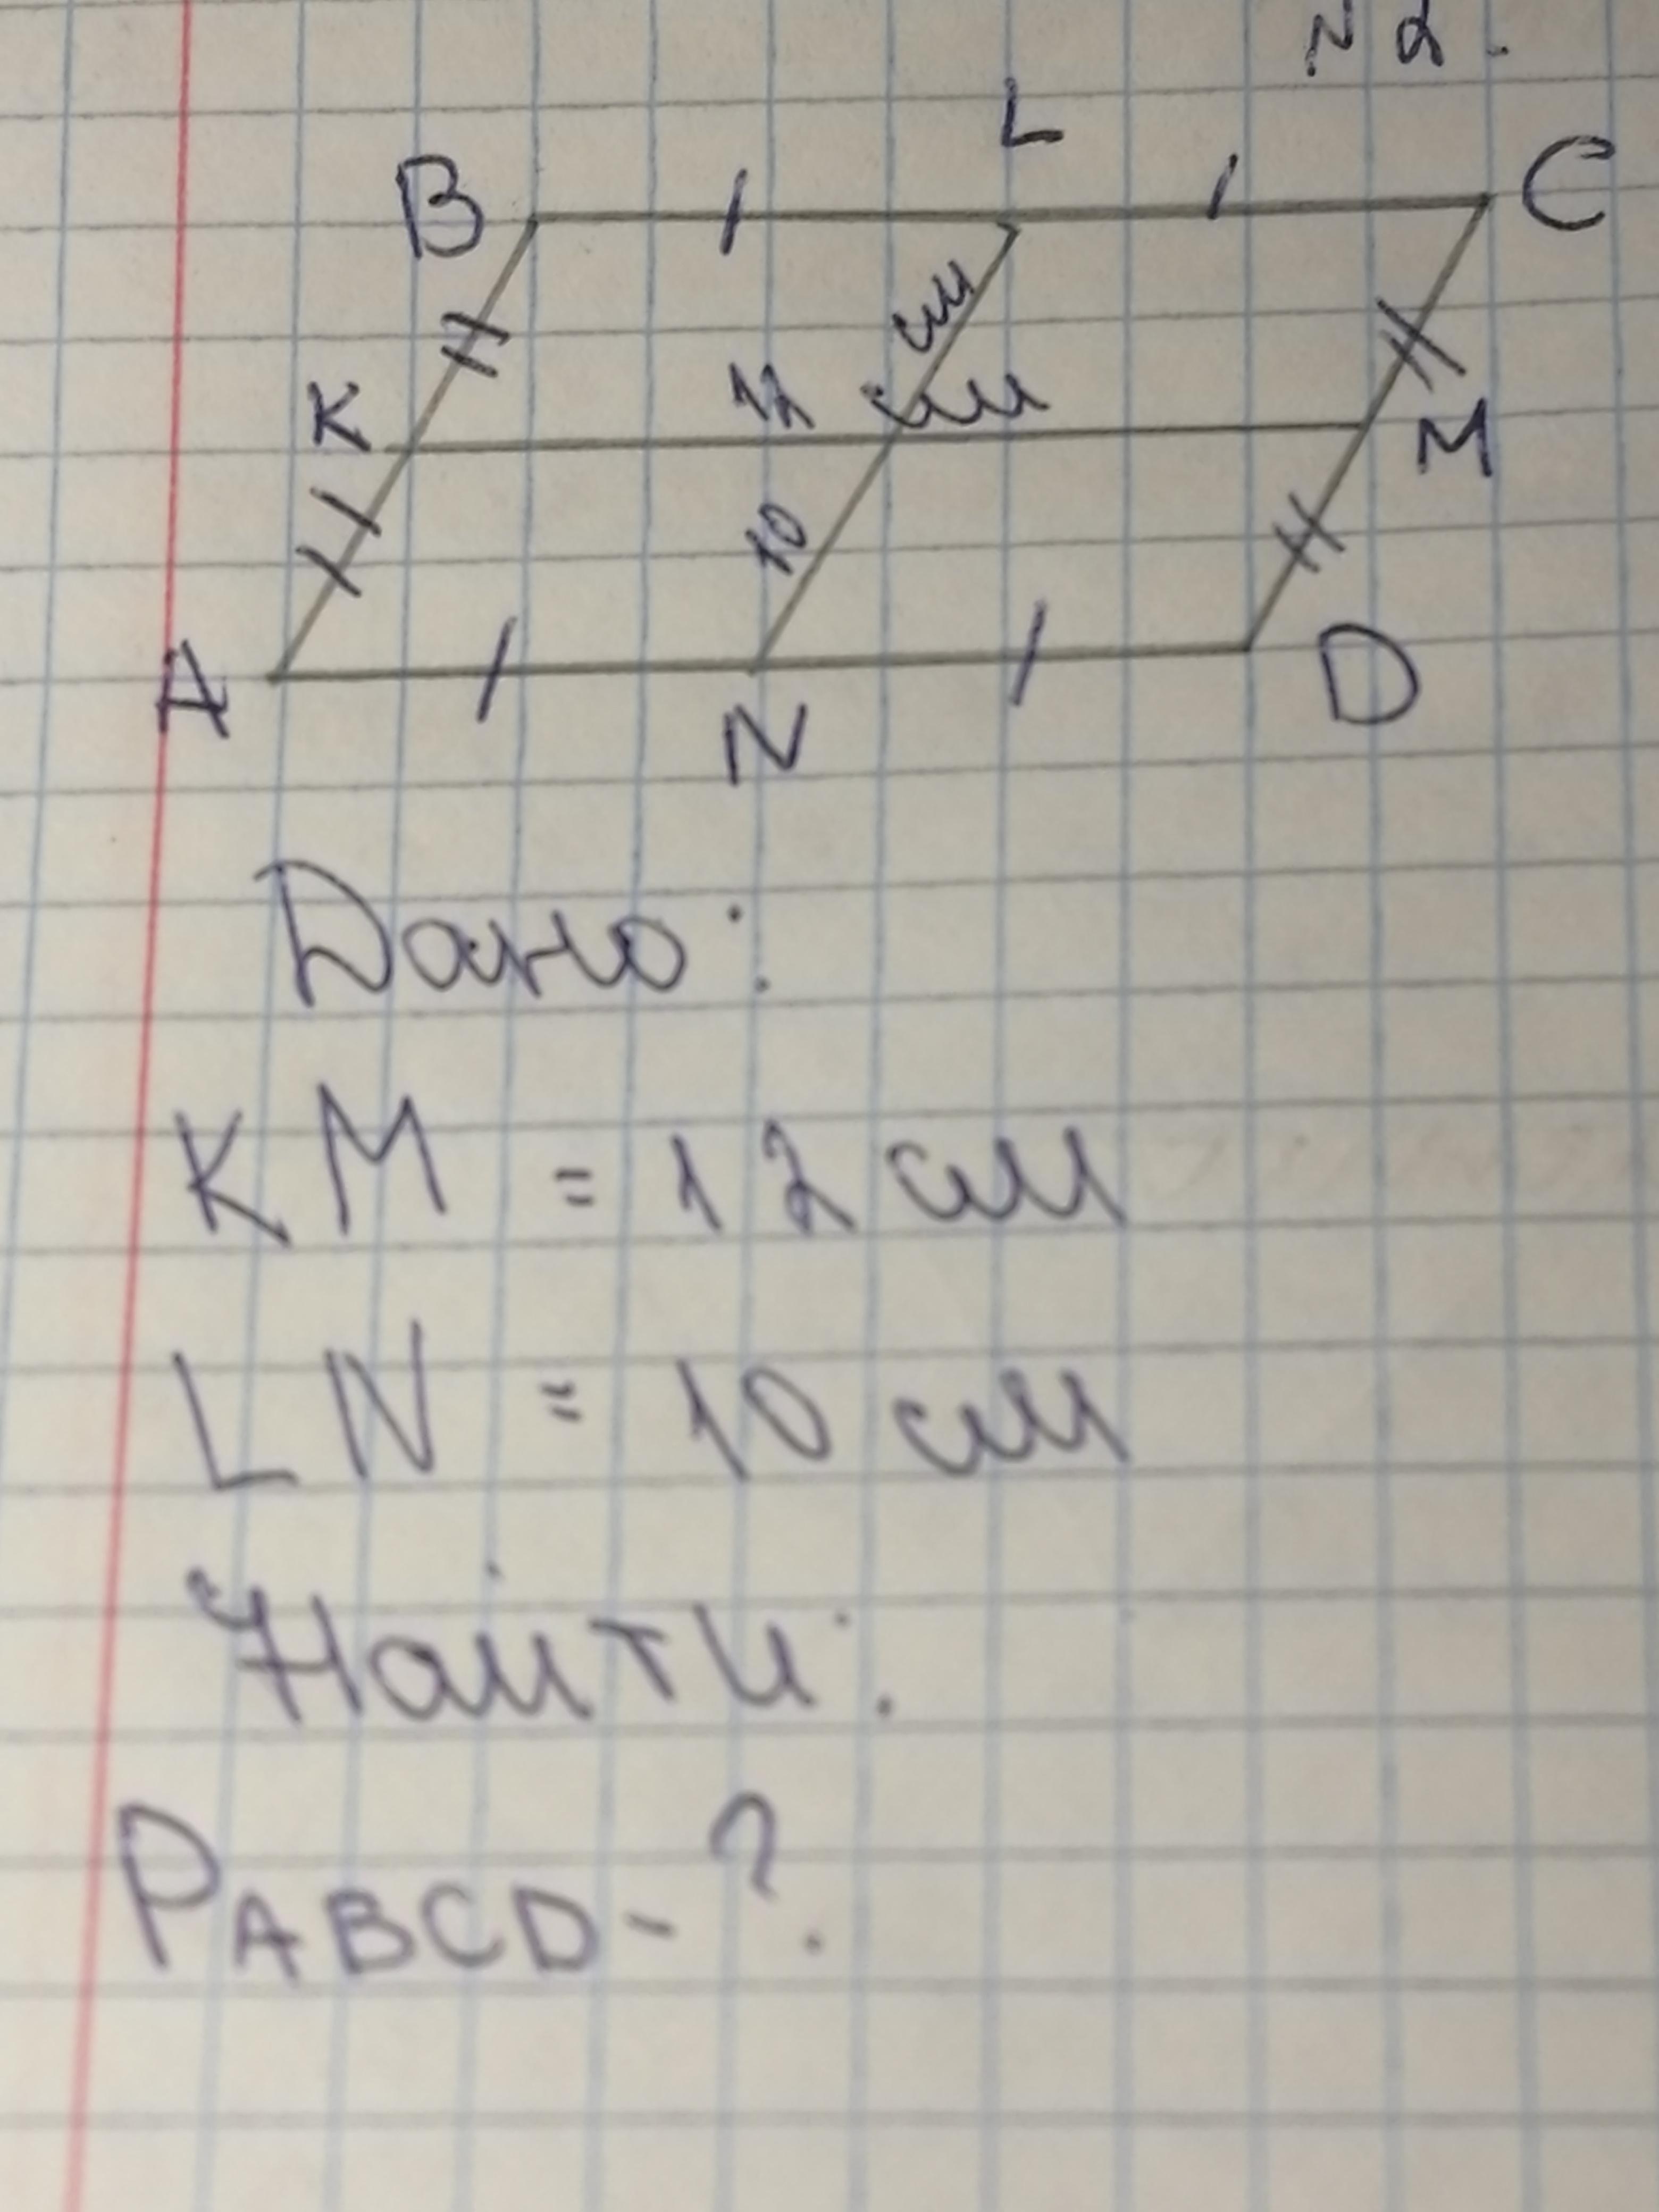 N 2.
L
B C
см
K 12 см M
10
A N D
Дано:
KM = 12 см
LN = 10 см
Найти:
PABCD - ?